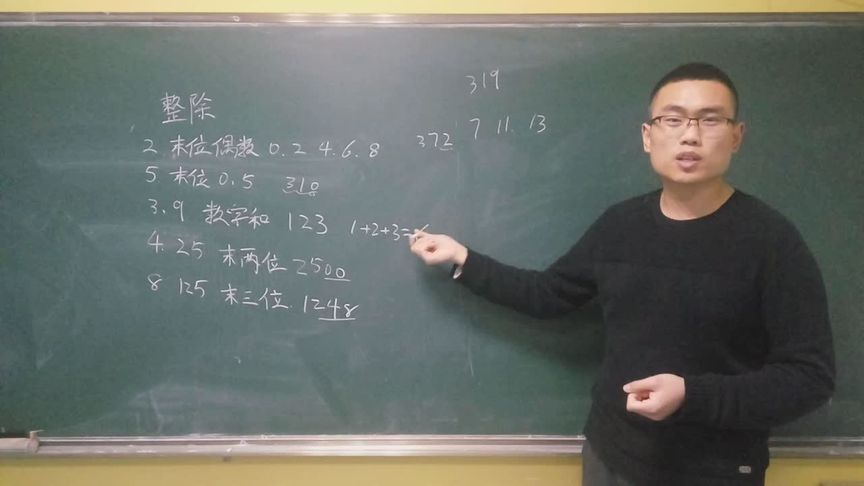 319
整除
7 11. 13
2 末位偶数 0. 2 4. 6. 8 372
5 末位 0. 5 310
3. 9 数字和 123 1+2+3=
4. 25 末两位 2500
8 125 末三位. 1248